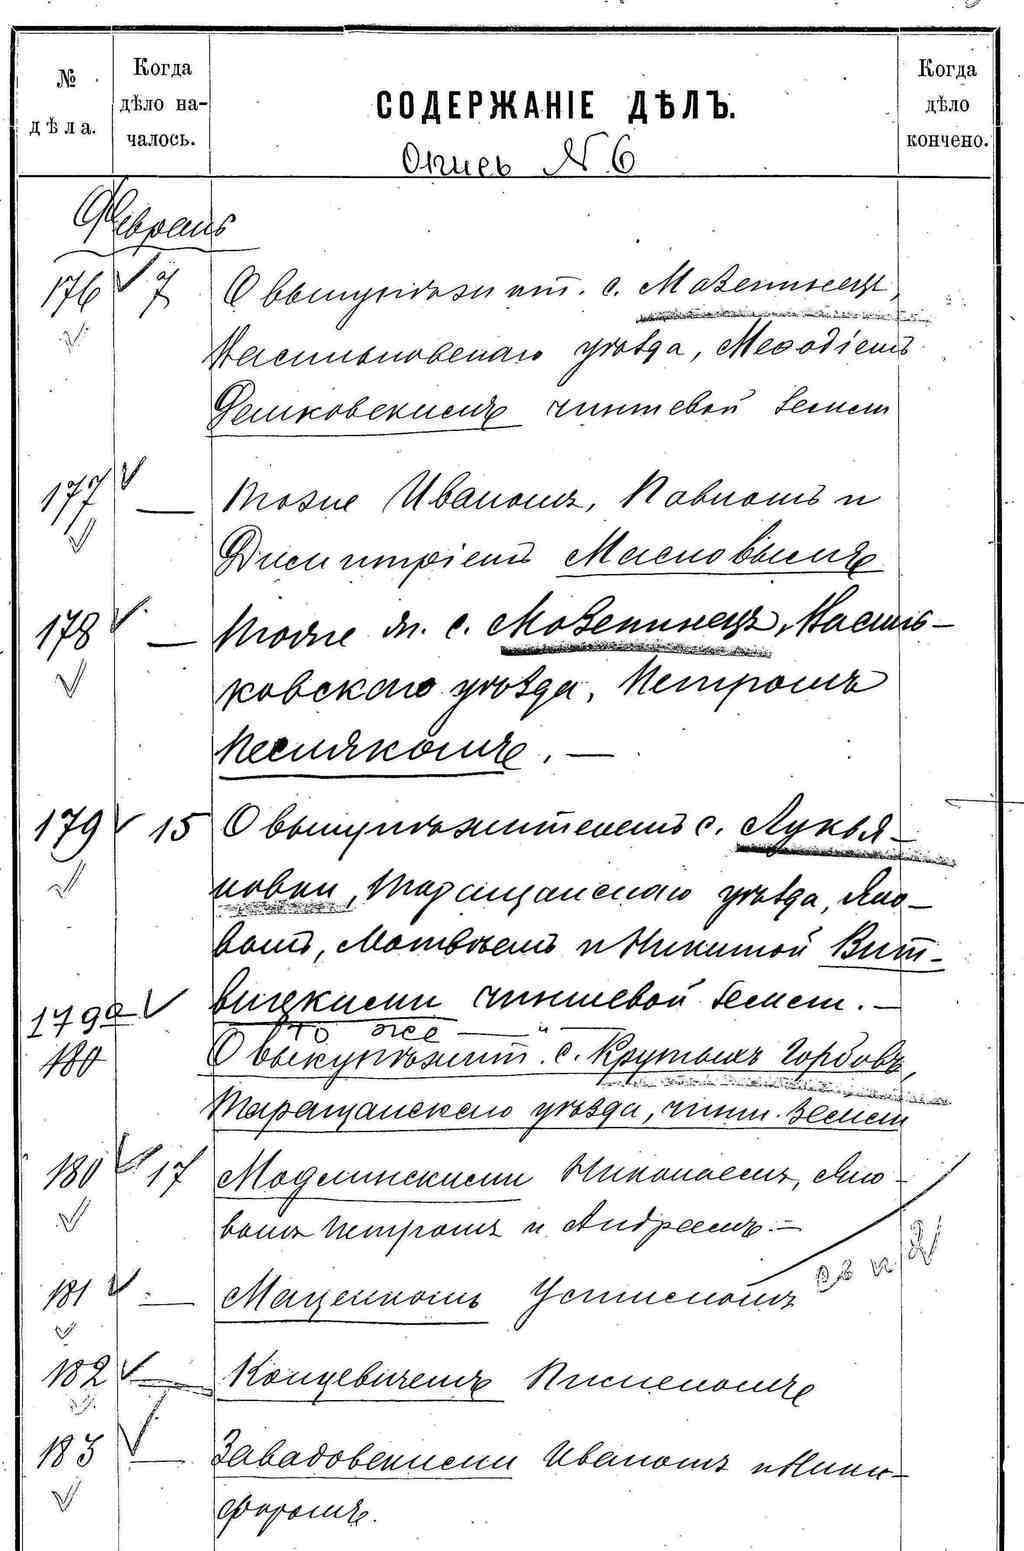 № дѣла.
Когда дѣло началось.
СОДЕРЖАНІЕ ДѢЛЪ.
Когда дѣло кончено.
Опись N 6
Февраль
176 7 О выкупѣ жит. с. Мазепинецъ,
Васильковскаго уѣзда, Меѳодіемъ
Демковскимъ чиншевой земли
177 — Тоже Иваномъ, Павломъ и
Димитріемъ Масловымъ
178 — Тоже жит. с. Мазепинецъ, Василь-
ковскаго уѣзда, Петромъ
Песлякомъ. —
179 15 О выкупѣ жителемъ с. Лукья-
новки, Таращанскаго уѣзда, Яко-
вомъ, Матвѣемъ и Никитой Вит-
вицкими чиншевой земли. —
179а то же — " —
180 О выкупѣ жит. с. Крутыхъ Горбовъ,
Таращанскаго уѣзда, чинш. земли
180 17 Модлинскими Николаемъ, Яко-
вомъ Петромъ и Андреемъ. —
181 — Маценкомъ Устимомъ
182 — Концевичемъ Пименомъ
183 — Завадовскими Иваномъ и Ники-
форомъ.